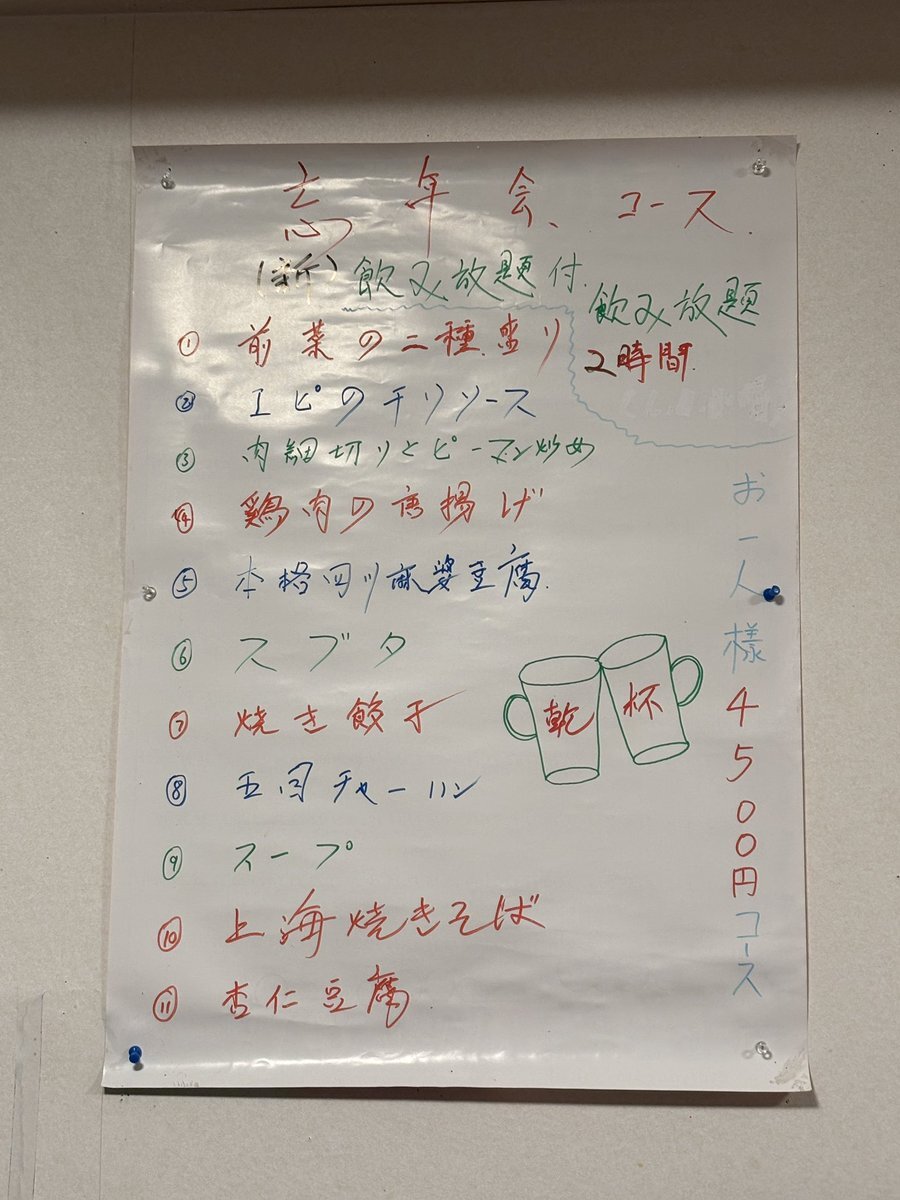 忘年会、コース
(新)飲み放題付
飲み放題
2時間
① 前菜の二種盛り
② エピのチリソース
③ 肉細切りとピーマン炒め
④ 鶏肉の唐揚げ
⑤ 本格四川麻婆豆腐
⑥ スブタ
⑦ 焼き餃子
⑧ 五目チャーハン
⑨ スープ
⑩ 上海焼きそば
⑪ 杏仁豆腐
乾杯
お一人様4500円コース